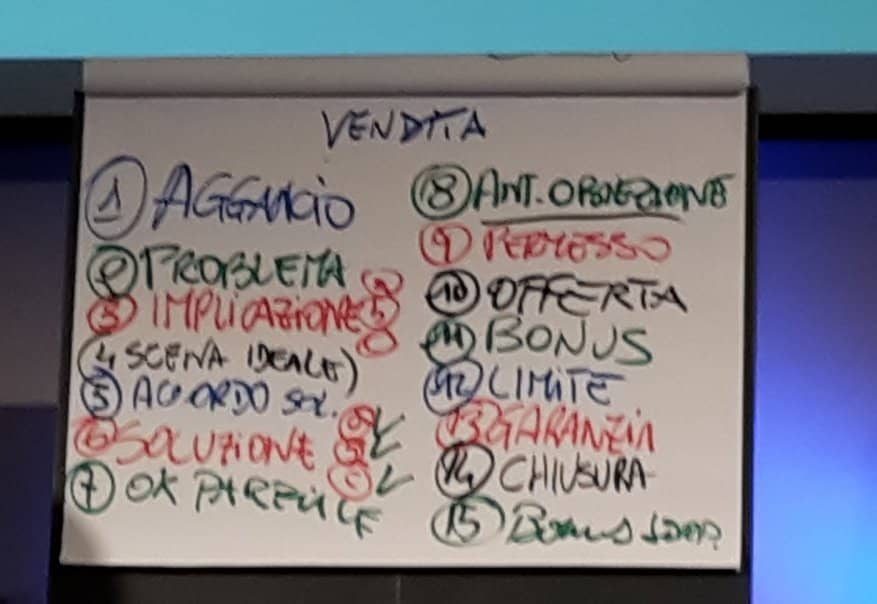 VENDITA
1 AGGANCIO
2 PROBLEMA
3 IMPLICAZIONE
(4 SCENA IDEALE)
5 ACCORDO SOL.
6 SOLUZIONE
7 OK PARZIALE
8 ANT. OBIEZIONE
9 PERMESSO
10 OFFERTA
11 BONUS
12 LIMITE
13 GARANZIA
14 CHIUSURA
15 BONUS